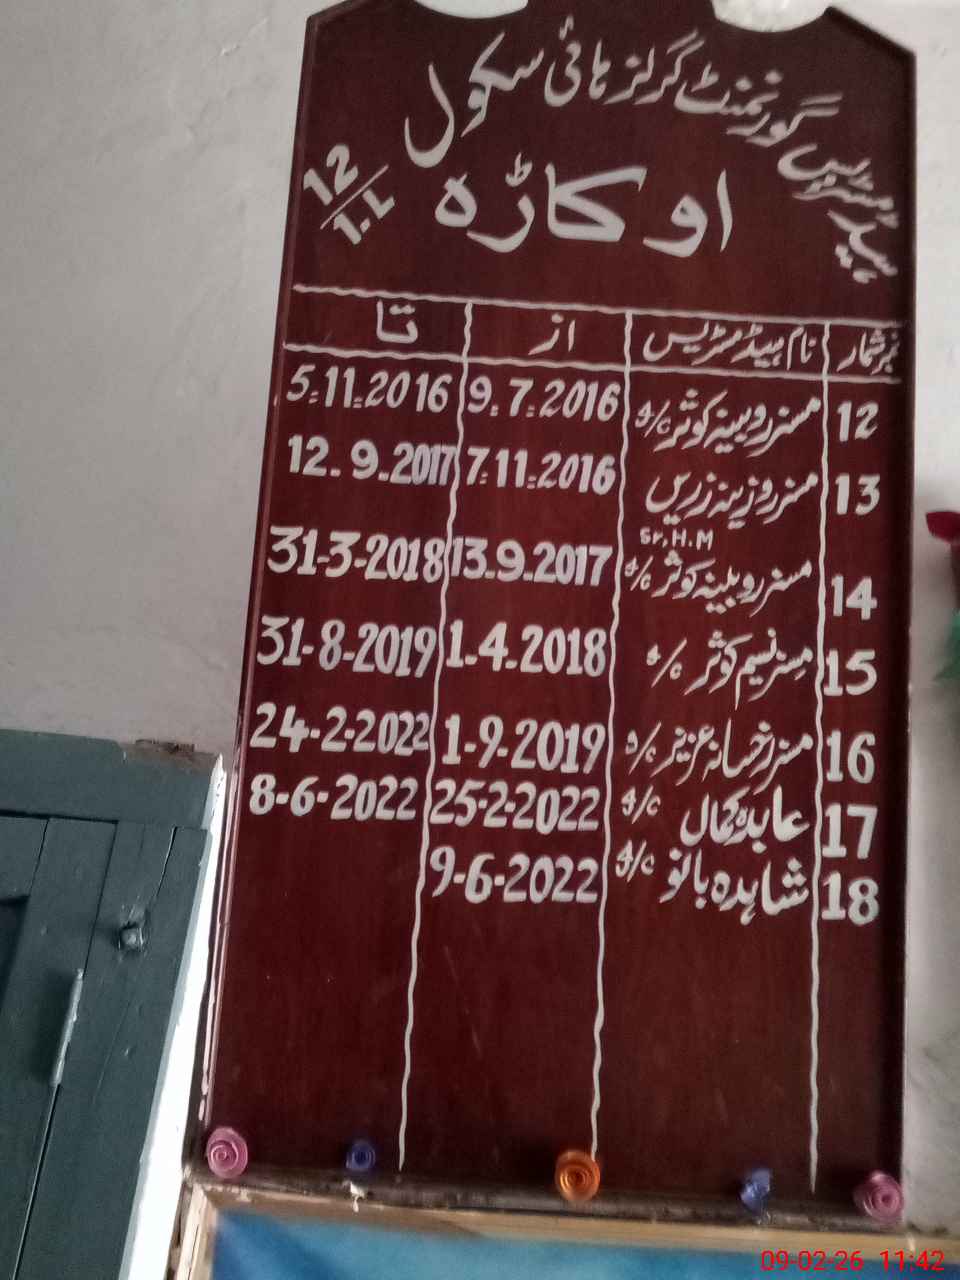 ہیڈمسٹریس گورنمنٹ گرلز ہائی سکول
12/1.L
اوکاڑہ
نمبر شمار نام ہیڈ مسٹریس از تا
12 مسز روبینہ کوثر I/C 9.7.2016 5.11.2016
13 مسز روزینہ زریں 7.11.2016 12.9.2017
Sr.H.M
14 مسز روبینہ کوثر I/C 13.9.2017 31-3-2018
15 مسز نسیم کوثر I/C 1.4.2018 31-8-2019
16 مسز رخسانہ عزیز I/C 1-9-2019 24-2-2022
17 عابدہ کمال I/C 25-2-2022 8-6-2022
18 شاہدہ بانو I/C 9-6-2022
09-02-26 11:42